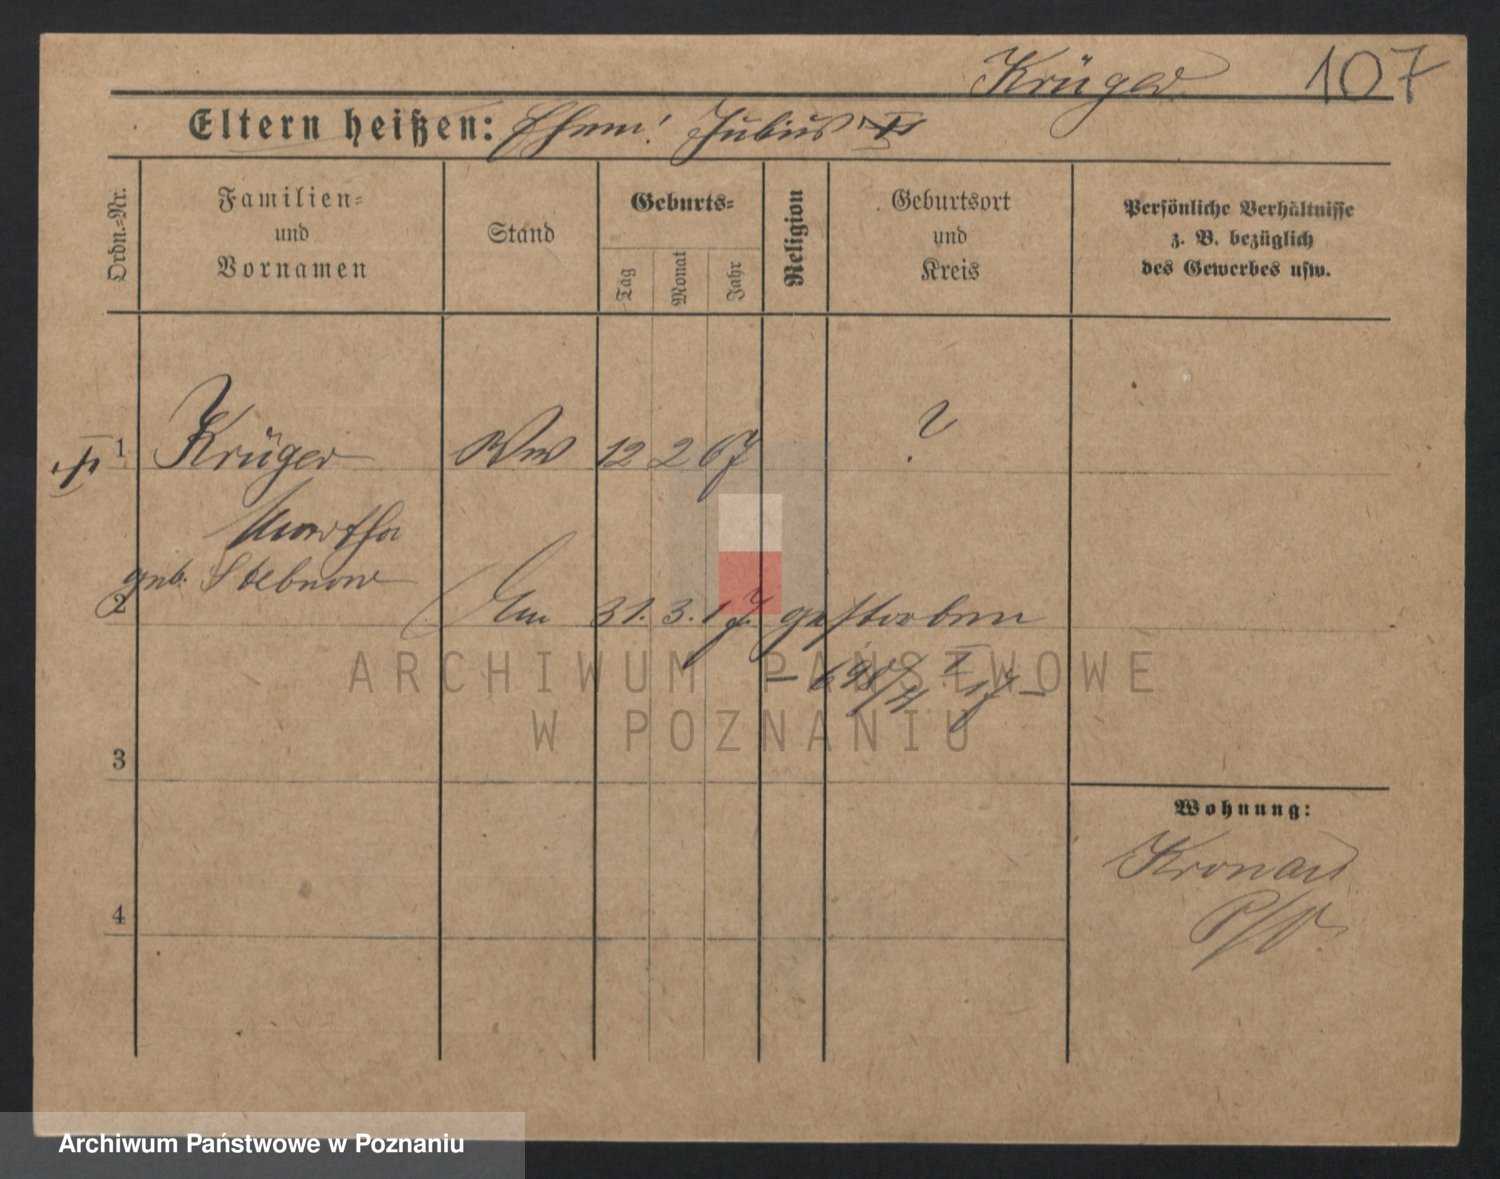 Krüger 107
Eltern heißen: Ehem! Julius
Ordn.-Nr.
Familien-
und
Vornamen
Stand
Geburts-
Tag
Monat
Jahr
Religion
Geburtsort
und
Kreis
Persönliche Verhältnisse
z. B. bezüglich
des Gewerbes usw.
1 Krüger Ww 12 2 67 ?
Martha
geb. Stebnow
2 Am 31. 3. 17. gestorben
ARCHIWUM PAŃSTWOWE
W POZNANIU
3
Wohnung:
Kronau
4
Archiwum Państwowe w Poznaniu